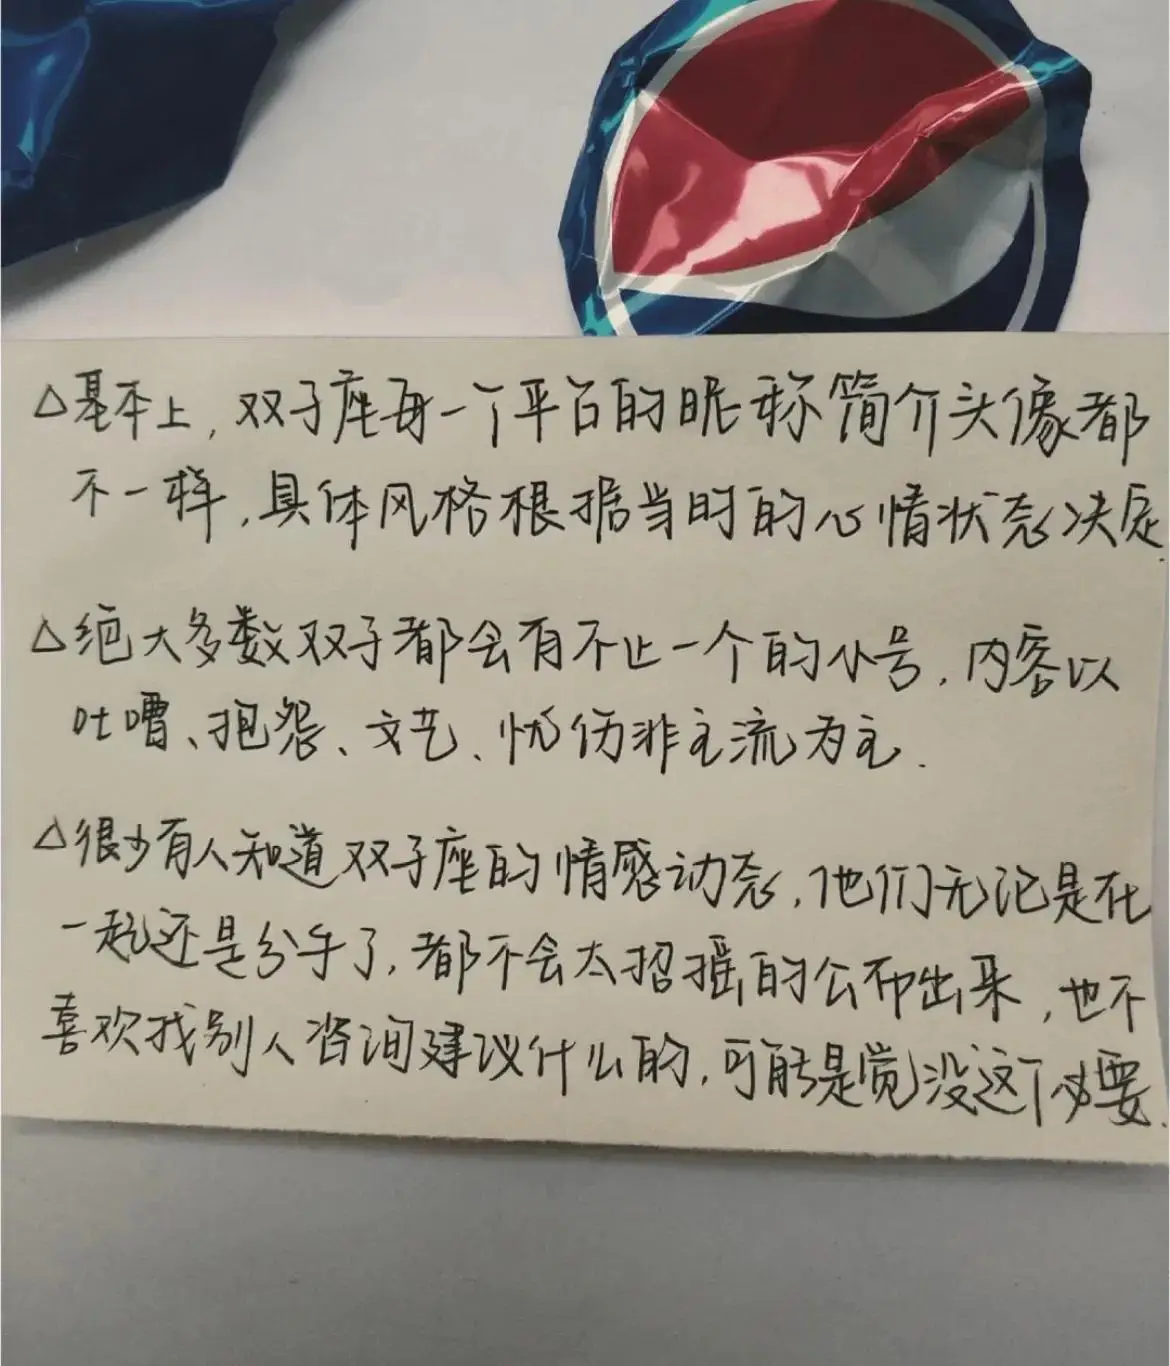 △基本上,双子座每一个平台的昵称简介头像都
不一样,具体风格根据当时的心情状态决定.
△绝大多数双子都会有不止一个的小号,内容以
吐嘈、抱怨、文艺、忧伤非主流为主.
△很少有人知道双子座的情感动态,他们无论是在
一起还是分手了,都不会太招摇的公布出来,也不
喜欢找别人咨询建议什么的,可能是觉没这个必要.